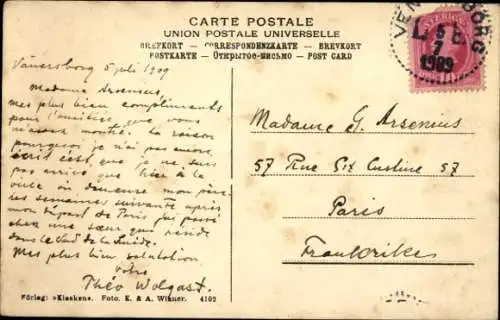 CARTE POSTALE
UNION POSTALE UNIVERSELLE
BREFKORT — CORRESPONDENZKARTE — BREVKORT
POSTKARTE — Открытое-письмо — POST CARD
SVERIGE
VEN BORG
5 7 1909
Vänersborg 5 juli 1909
Madame Arsenius,
mes plus bien compliments
pour l'amitiée, que vous
m'avez montré. La raison
pourquoi je n'ai pas encore
écrit est, que je ne suis
pas arrivé que hier à la
où demeure mon père.
les semaines suivante après
mon départ de Paris j'ai passé
chez une sœur qui réside
dans le Sud de la Suède.
Mes plus bien salutation
votre
Théo Wolgast.
Madame G. Arsenius
57 Rue Custine 57
Paris
Frankrike
Förlag: »Kiosken«. Foto. K. & A. Wikner. 4102